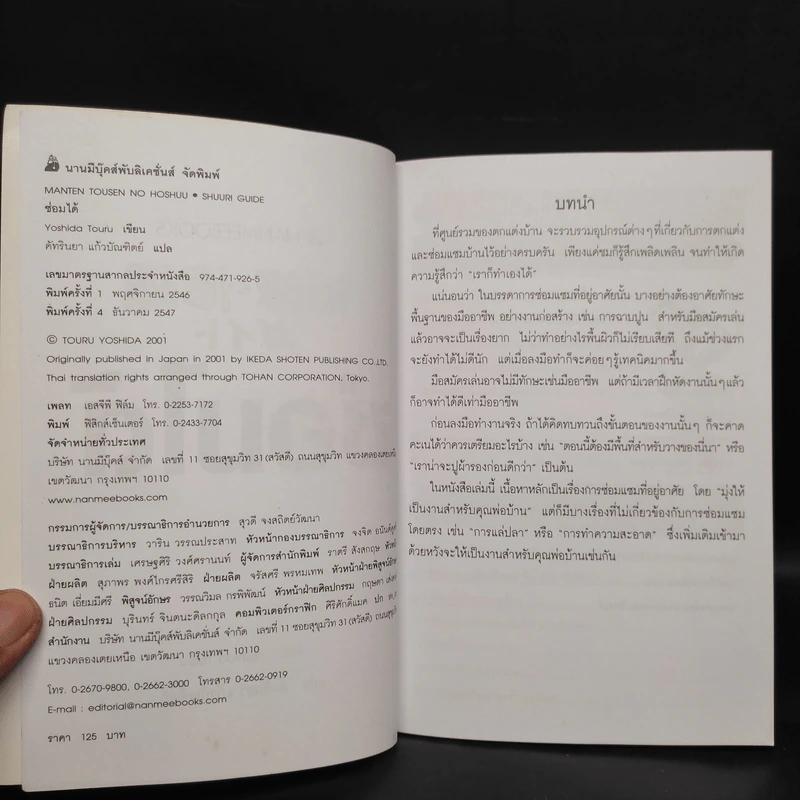 นานมีบุ๊คส์พับลิเคชั่นส์ จัดพิมพ์
MANTEN TOUSEN NO HOSHUU • SHUURI GUIDE
ซ่อมได้
Yoshida Touru เขียน
คัทรินยา แก้วบัณฑิตย์ แปล
เลขมาตรฐานสากลประจำหนังสือ 974-471-926-5
พิมพ์ครั้งที่ 1 พฤศจิกายน 2546
พิมพ์ครั้งที่ 4 ธันวาคม 2547
© TOURU YOSHIDA 2001
Originally published in Japan in 2001 by IKEDA SHOTEN PUBLISHING CO.,LTD.
Thai translation rights arranged through TOHAN CORPORATION, Tokyo.
เพลท เอสจีพี ฟิล์ม โทร. 0-2253-7172
พิมพ์ ฟิสิกส์เซ็นเตอร์ โทร. 0-2433-7704
จัดจำหน่ายทั่วประเทศ
บริษัท นานมีบุ๊คส์ จำกัด เลขที่ 11 ซอยสุขุมวิท 31 (สวัสดี) ถนนสุขุมวิท แขวงคลองเตยเหนือ
เขตวัฒนา กรุงเทพฯ 10110
www.nanmeebooks.com
กรรมการผู้จัดการ/บรรณาธิการอำนวยการ สุวดี จงสถิตย์วัฒนา
บรรณาธิการบริหาร วาริน วรรณประสาท หัวหน้ากองบรรณาธิการ จงจิต
บรรณาธิการเล่ม เศรษฐศิริ วงค์ศรานนท์ ผู้จัดการสำนักพิมพ์ ราตรี สังสกฤษ
ฝ่ายผลิต สุภาพร พงศ์ไกรศรีสิริ ฝ่ายผลิต จรัสศรี พรหมเทพ หัวหน้าฝ่ายพิสูจน์อักษร
ธนิต เอี่ยมมีศรี พิสูจน์อักษร วรรณวิมล กรพิพัฒน์ หัวหน้าฝ่ายศิลปกรรม กฤษดา
ฝ่ายศิลปกรรม บุรินทร์ จินตนะดิลกกุล คอมพิวเตอร์กราฟิก ศิริศักดิ์แมค ปก
สำนักงาน บริษัท นานมีบุ๊คส์พับลิเคชั่นส์ จำกัด เลขที่ 11 ซอยสุขุมวิท 31 (สวัสดี) ถนนสุขุมวิท
แขวงคลองเตยเหนือ เขตวัฒนา กรุงเทพฯ 10110
โทร. 0-2670-9800, 0-2662-3000 โทรสาร 0-2662-0919
E-mail : editorial@nanmeebooks.com
ราคา 125 บาท
บทนำ
ที่ศูนย์รวมของตกแต่งบ้าน จะรวบรวมอุปกรณ์ต่างๆที่เกี่ยวกับการตกแต่ง
และซ่อมแซมบ้านไว้อย่างครบครัน เพียงแค่ชมก็รู้สึกเพลิดเพลิน จนทำให้เกิด
ความรู้สึกว่า "เราก็ทำเองได้"
แน่นอนว่า ในบรรดาการซ่อมแซมที่อยู่อาศัยนั้น บางอย่างต้องอาศัยทักษะ
พื้นฐานของมืออาชีพ อย่างงานก่อสร้าง เช่น การฉาบปูน สำหรับมือสมัครเล่น
แล้วอาจจะเป็นเรื่องยาก ไม่ว่าทำอย่างไรพื้นผิวก็ไม่เรียบเสียที ถึงแม้ช่วงแรก
จะยังทำได้ไม่ดีนัก แต่เมื่อลงมือทำก็จะค่อยๆรู้เทคนิคมากขึ้น
มือสมัครเล่นอาจไม่มีทักษะเช่นมืออาชีพ แต่ถ้ามีเวลาฝึกหัดงานนั้นๆแล้ว
ก็อาจทำได้ดีเท่ามืออาชีพ
ก่อนลงมือทำงานจริง ถ้าได้คิดทบทวนถึงขั้นตอนของงานนั้นๆ ก็จะคาด
คะเนได้ว่าควรเตรียมอะไรบ้าง เช่น "ตอนนี้ต้องมีพื้นที่สำหรับวางของนี่นา" หรือ
"เราน่าจะปูผ้ารองก่อนดีกว่า" เป็นต้น
ในหนังสือเล่มนี้ เนื้อหาหลักเป็นเรื่องการซ่อมแซมที่อยู่อาศัย โดย "มุ่งให้
เป็นงานสำหรับคุณพ่อบ้าน" แต่ก็มีบางเรื่องที่ไม่เกี่ยวข้องกับการซ่อมแซม
โดยตรง เช่น "การแล่ปลา" หรือ "การทำความสะอาด" ซึ่งเพิ่มเติมเข้ามา
ด้วยหวังจะให้เป็นงานสำหรับคุณพ่อบ้านเช่นกัน